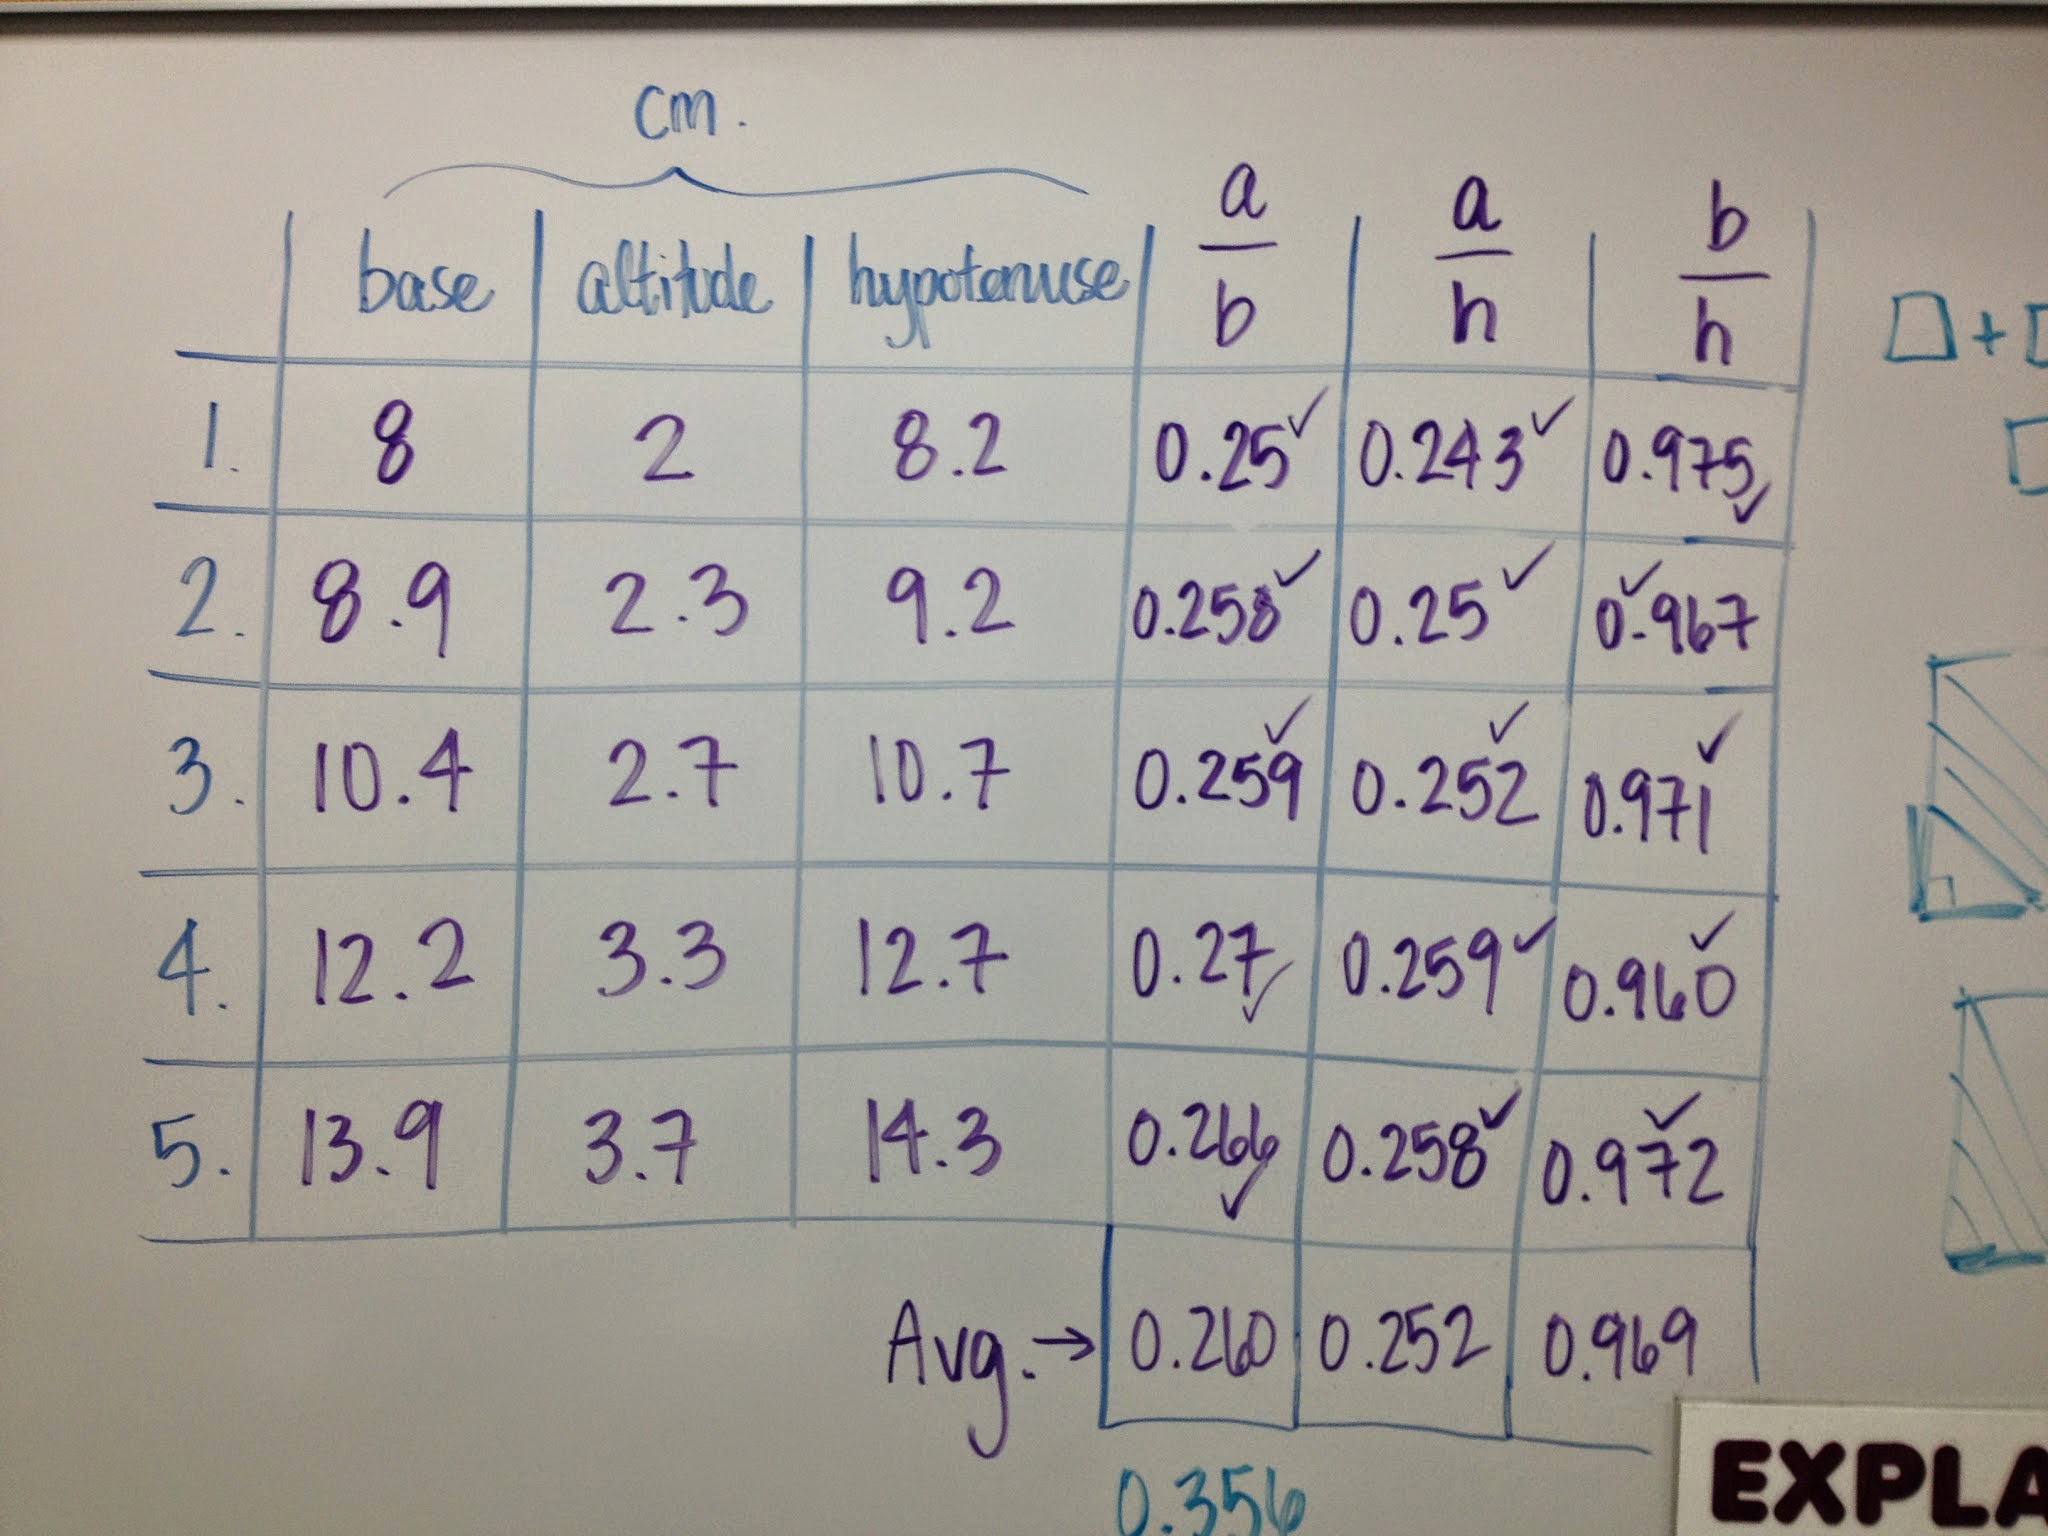 cm.
base altitude hypotenuse a/b a/h b/h
1. 8 2 8.2 0.25✓ 0.243✓ 0.975✓
2. 8.9 2.3 9.2 0.258✓ 0.25✓ 0.967✓
3. 10.4 2.7 10.7 0.259✓ 0.252✓ 0.971✓
4. 12.2 3.3 12.7 0.27✓ 0.259✓ 0.960✓
5. 13.9 3.7 14.3 0.266✓ 0.258✓ 0.972✓
Avg. → 0.260 0.252 0.969
0.356
□+□
EXPLA